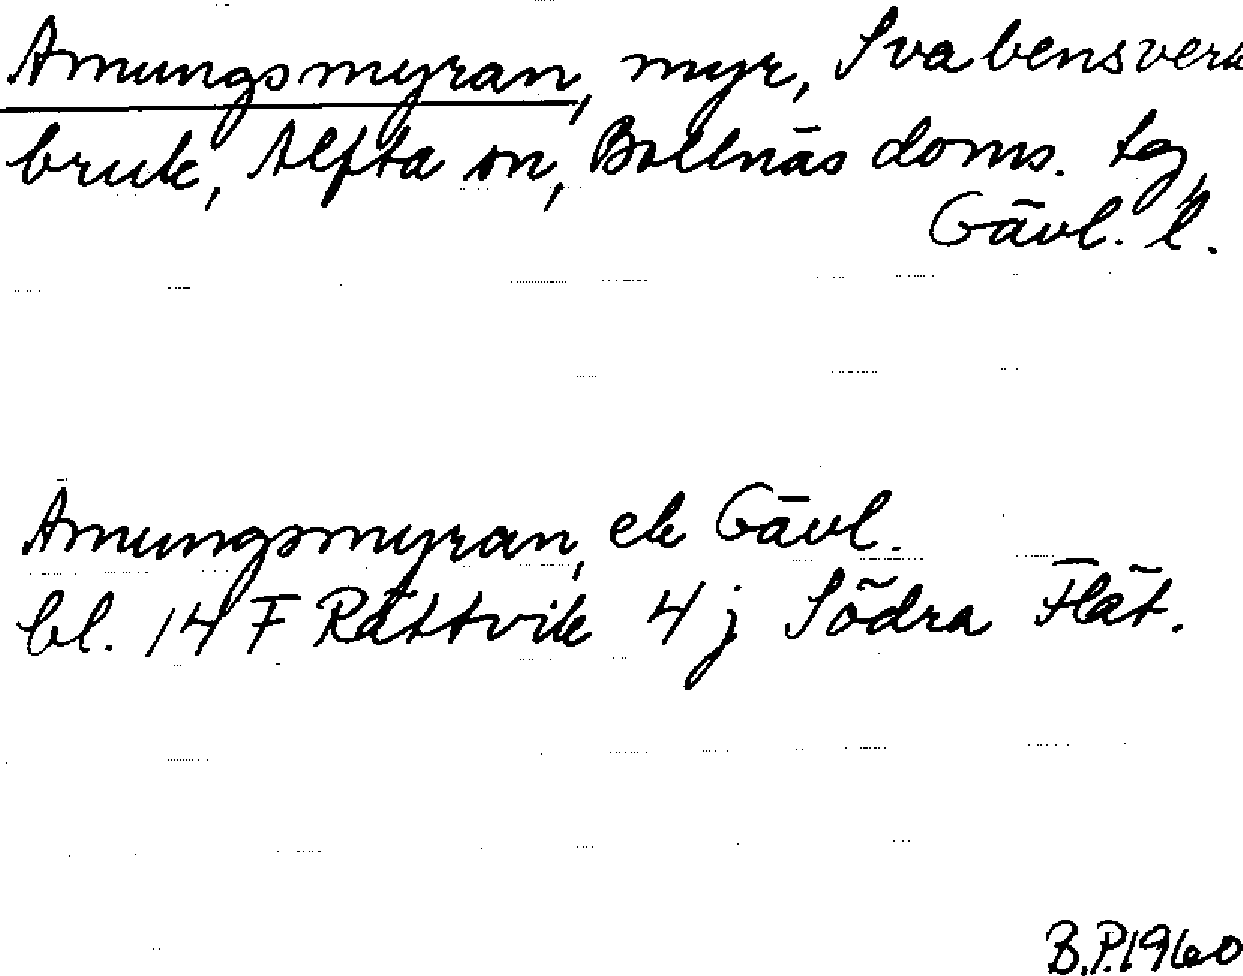 Amungsmyran, myr, Svabensverk
bruk, Alfta sn, Bollnäs doms. tg,
Gävl. l.
Amungsmyran, ek Gävl.
bl. 14 F Rättvik 4 j Södra Flät.
B.P. 1960